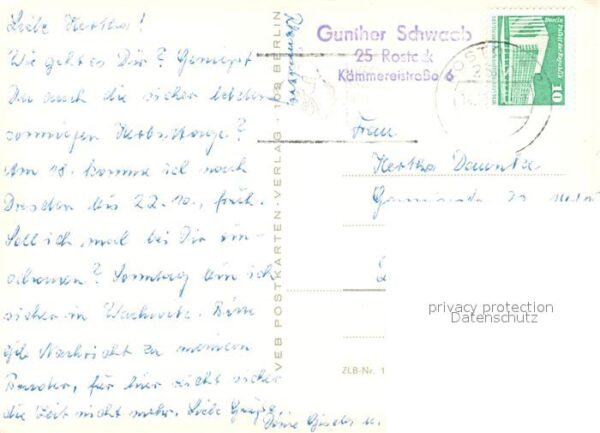 Liebe Hertha!
Wie geht es Dir? Geniesst
Du auch die sicher letzten
sonnigen Herbsttage?
Am 18. komme ich nach
Dresden bis 22.10., früh.
Soll ich mal bei Dir ein-
? Sonntag bin ich
sicher in Wachwitz. Bitte
gib Nachricht zu meinem
Bruder, für hier reicht sicher
die Zeit nicht mehr. Liebe Grüße,
Deine Gisela u.
VEB POSTKARTEN-VERLAG · BERLIN
Gunther Schwaab
25 Rostock
Kämmereistraße 6
10
Frau
Hertha
privacy protection
Datenschutz
ZLB-Nr. 1